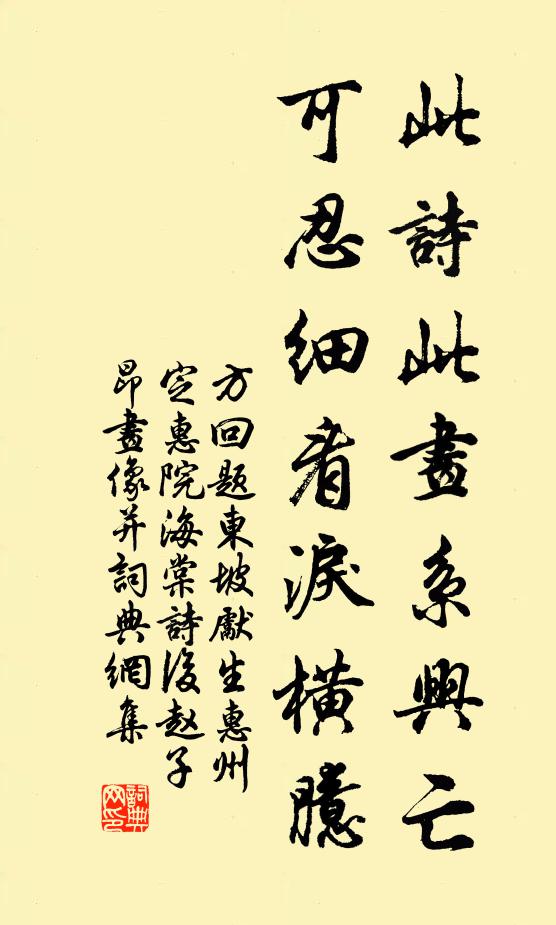 此詩此畫系興亡
可忍細看淚橫臆
方回题東坡獻生惠州
定惠院海棠詩後赵子
昂畫像并詞典網集
詞典
网印